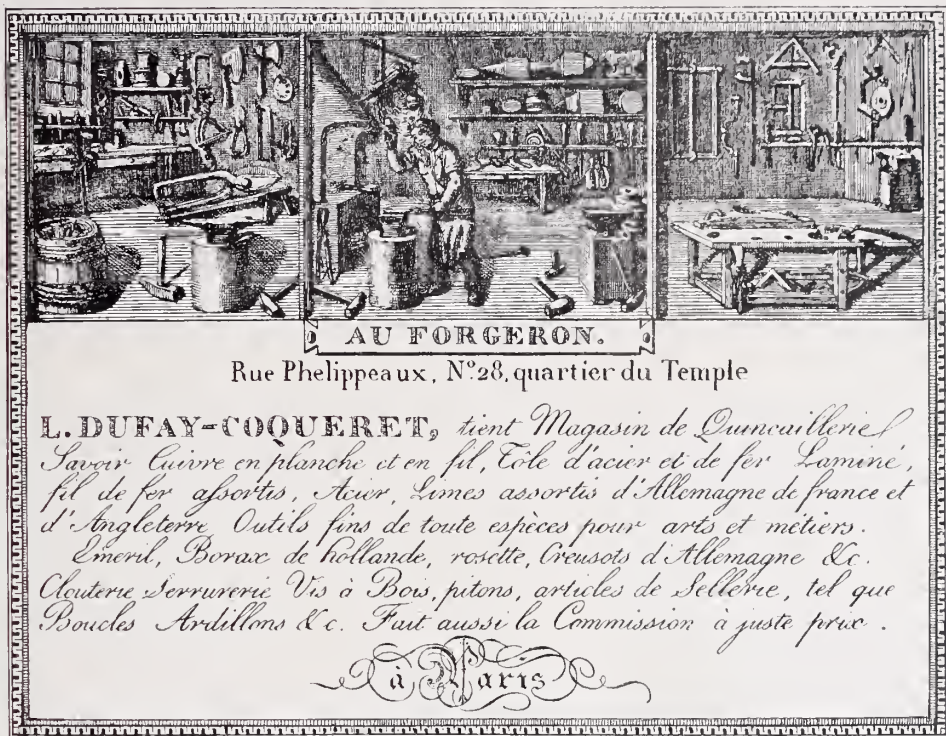 AU FORGERON.
Rue Phelippeaux, Nº.28, quartier du Temple
L. DUFAY-COQUERET, tient Magasin de Quincaillerie
Savoir Cuivre en planche et en fil, Tôle d'acier et de fer Laminé,
fil de fer assortis, Acier, Limes assortis d'Allemagne de france et
d'Angleterre, Outils fins de toute espèces pour arts et métiers.
Emeril, Borax de hollande, rosette, Creusots d'Allemagne &c.
Clouterie Serrurerie Vis à Bois, pitons, articles de Sellerie, tel que
Boucles Ardillons &c. Fait aussi la Commission à juste prix.
à Paris